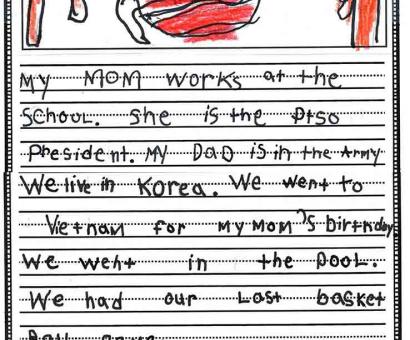 My MOM works at the
School. She is the Ptso
President. MY DaD is in the Army
We live in Korea. We went to
Vietnam for My Mom's birthday.
We went in the Pool.
We had our Last basket
Ball